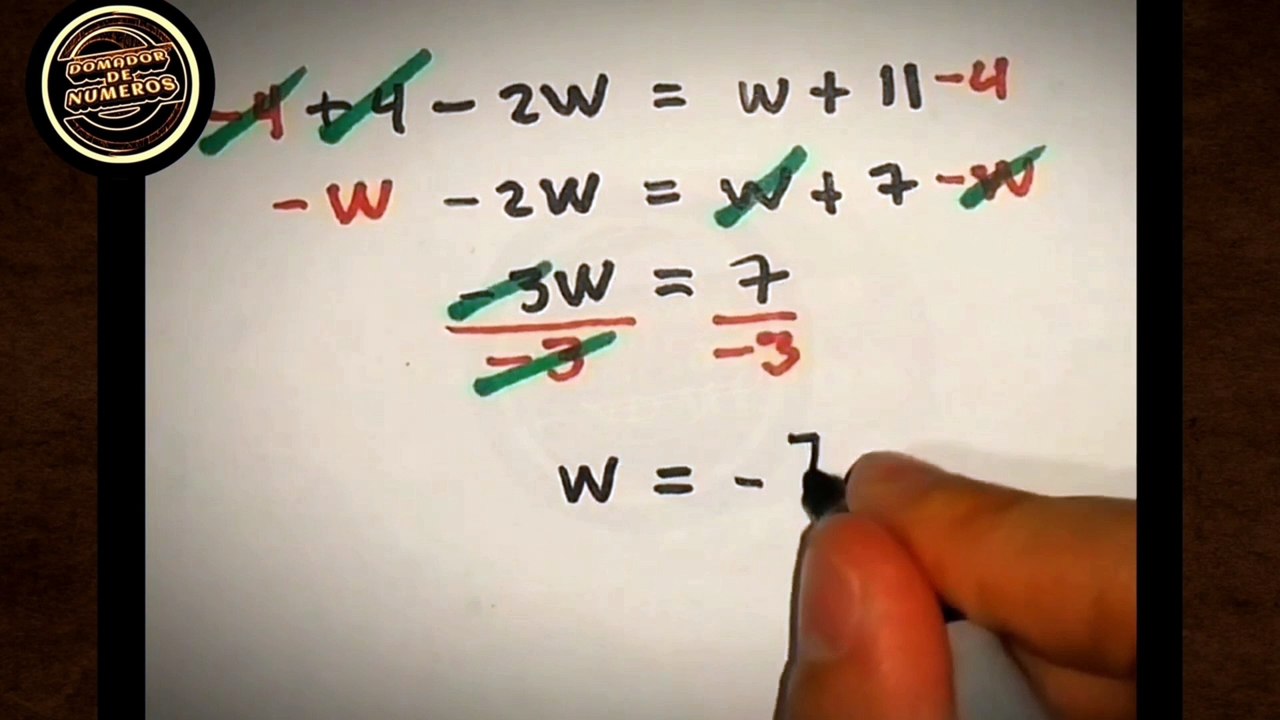 DOMADOR
DE
NUMEROS
-4 + 4 - 2W = W + 11 - 4
- W - 2W = W + 7 - W
-3W = 7
-3 -3
W = - 7